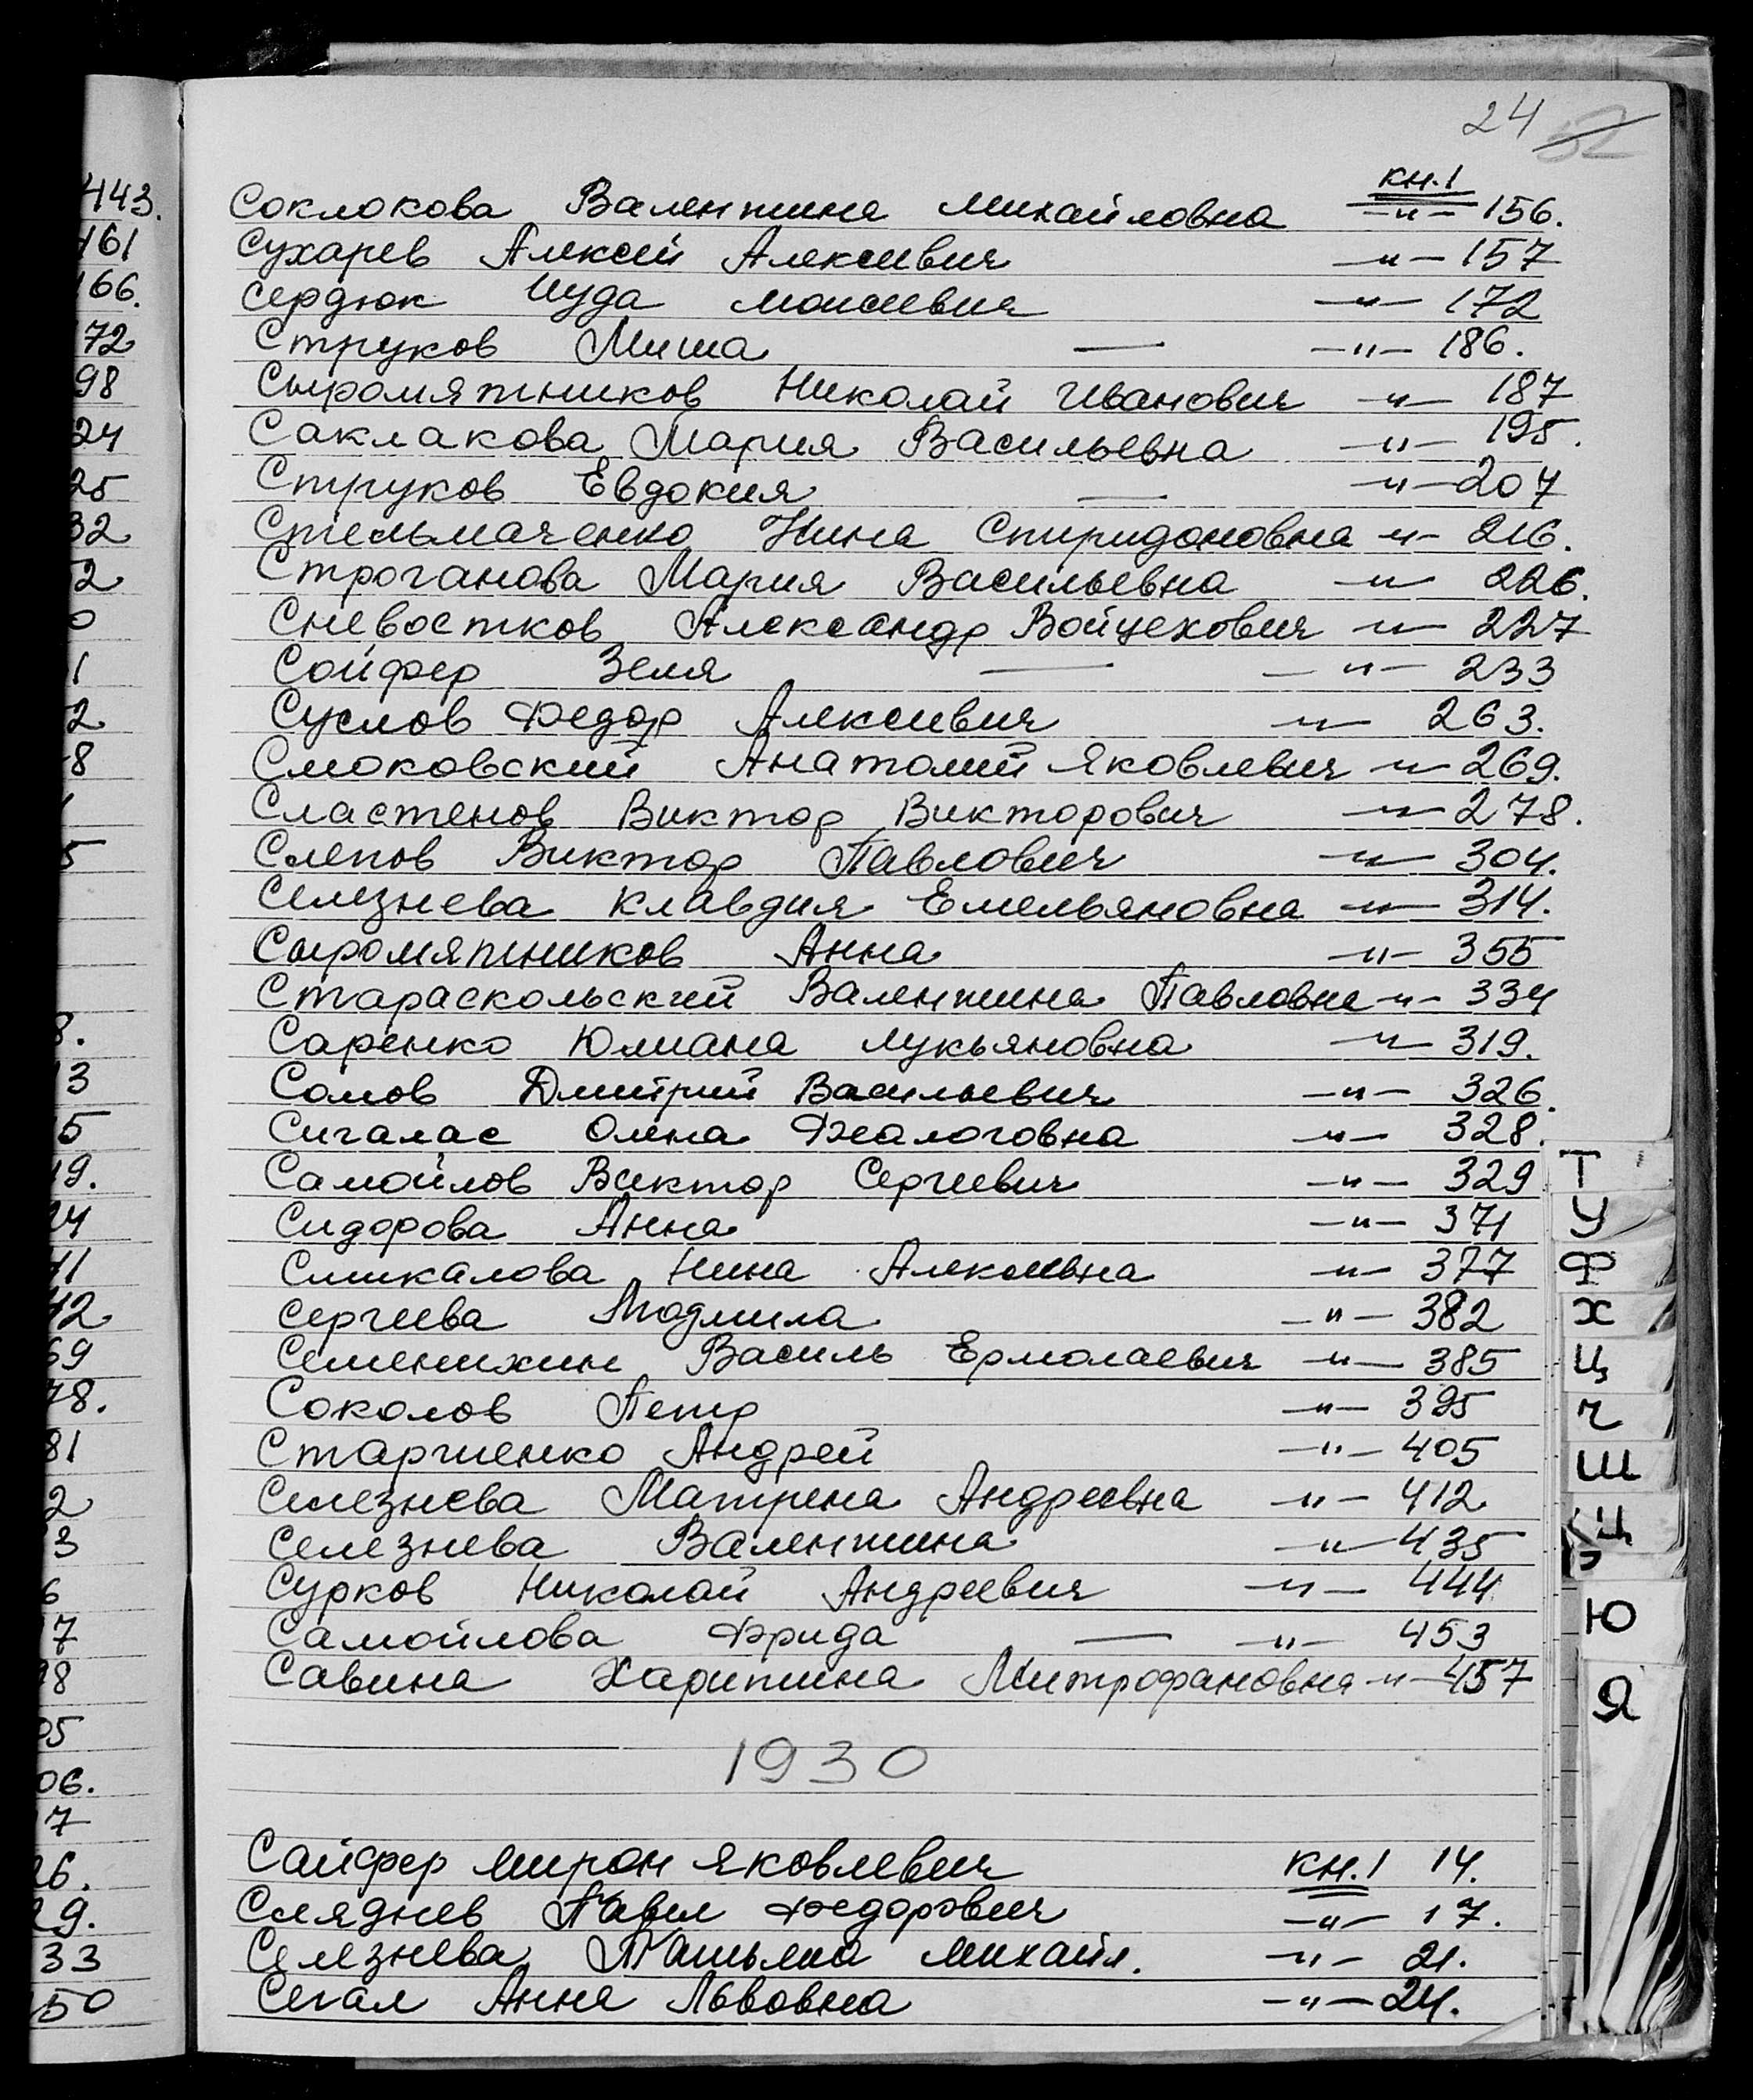 24 32
кн.1
Соклокова Валентина Михайловна —"— 156.
Сухарев Алексей Алексеевич —"— 157
Сердюк Иуда Моисеевич —"— 172
Струков Миша — —"— 186.
Сыромятников Николай Иванович —"— 187
Саклакова Мария Васильевна —"— 195.
Струков Евдокия — —"— 207
Стельмаченко Нина Спиридоновна —"— 216.
Строганова Мария Васильевна —"— 226.
Сневостков Александр Войцехович —"— 227
Сойфер Зеля — —"— 233
Суслов Федор Алексеевич —"— 263.
Смоковский Анатолий Яковлевич —"— 269.
Сластенов Виктор Викторович —"— 278.
Слепов Виктор Павлович —"— 304.
Селезнева Клавдия Емельяновна —"— 314.
Сыромятников Анна —"— 355
Стараскольский Валентина Павловна —"— 334
Саренко Юлиана Лукьяновна —"— 319.
Сомов Дмитрий Васильевич —"— 326.
Сигалас Олена Феалоговна —"— 328.
Самойлов Виктор Сергеевич —"— 329
Сидорова Анна —"— 371
Смикалова Нина Алексеевна —"— 377
Сергеева Людмила —"— 382
Семенихин Василь Ермолаевич —"— 385
Соколов Петр —"— 395
Старченко Андрей —"— 405
Селезнева Матрена Андреевна —"— 412
Селезнева Валентина —"— 435
Сурков Николай Андреевич —"— 444
Самойлова Фрида — —"— 453
Савина Харитина Митрофановна —"— 457
1930
Сайфер Мирон Яковлевич кн.1 14.
Следнев Павел Федорович —"— 17.
Селезнева Татьяна Михайл. —"— 21.
Сегал Анна Львовна —"— 24.
Т
У
Ф
Х
Ц
Ч
Ш
Щ
Э
Ю
Я